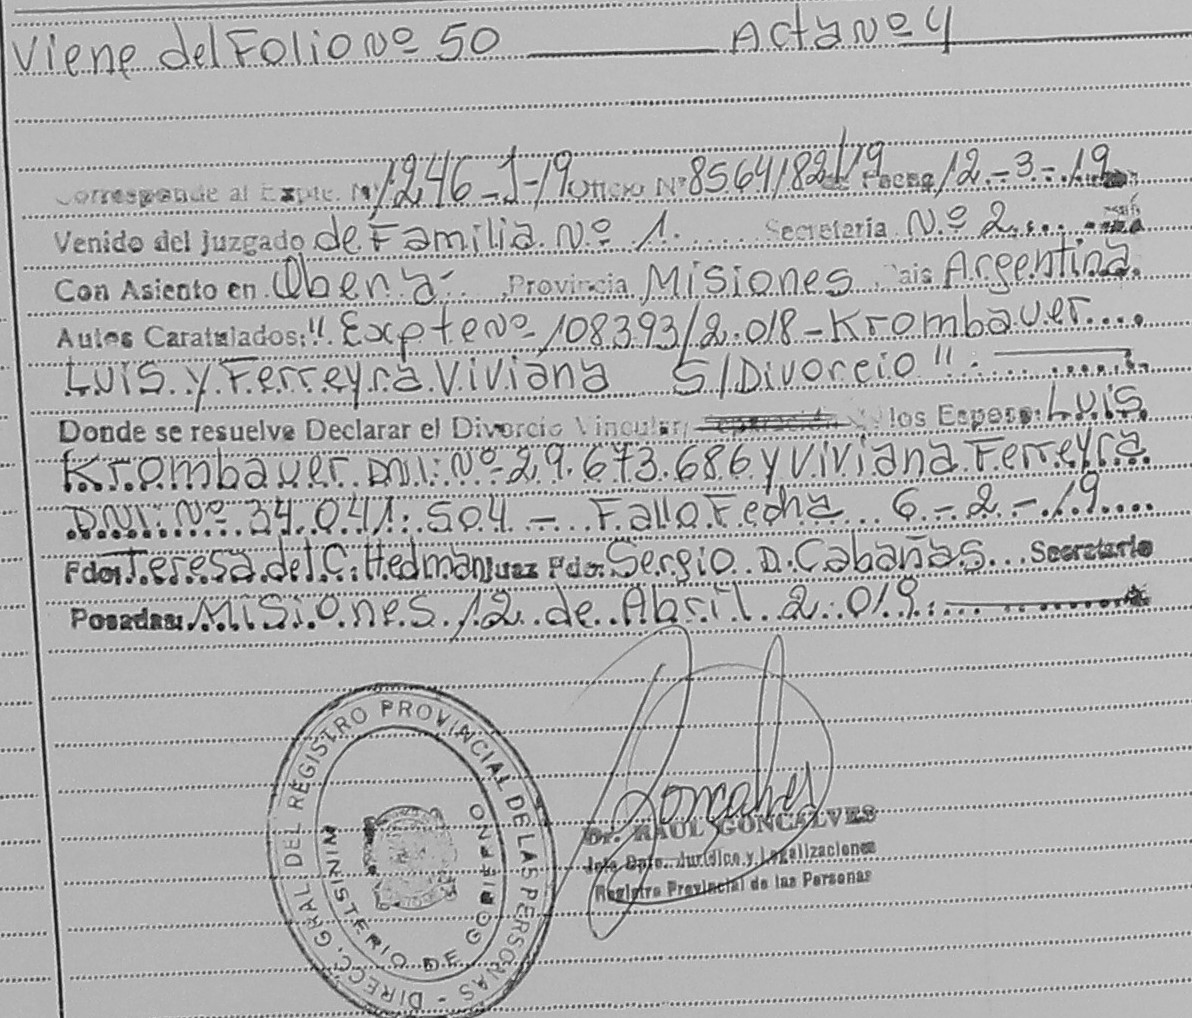 Viene del Folio Nº 50 Acta Nº 4
Corresponde al Expte. Nº 1246-J-19 Oficio Nº 8564/82/19 de Fecha 12-3-19
Venido del Juzgado de Familia Nº 1. Secretaría Nº 2
Con Asiento en Obera, Provincia Misiones, Pais Argentina
Autos Caratulados: "Expte Nº 108393/2.018-Krombauer
Luis y Ferreyra Viviana S/Divorcio"
Donde se resuelve Declarar el Divorcio Vincular, separación los Esposo: Luis
Krombauer DNI: Nº 29.673.686 y Viviana Ferreyra
DNI: Nº 34.041.504 - Fallo Fecha 6-2-19
Fdo: Teresa del C. Hedman Juez Fdo: Sergio D. Cabañas Secretario
Posadas: Misiones 12 de Abril 2.019
DIRECC. GRAL DEL REGISTRO PROVINCIAL DE LAS PERSONAS -
MINISTERIO DE GOBIERNO
Goncalves
Dr. RAUL GONCALVES
Jefe Dpto. Jurídico y Legalizaciones
Registro Provincial de las Personas